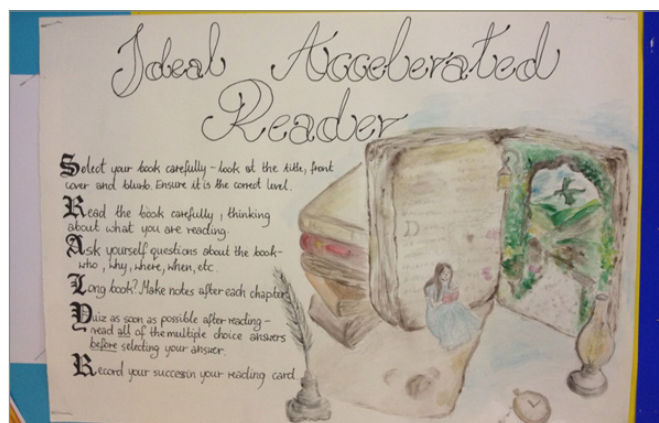 Ideal Accelerated
Reader
Select your book carefully - look at the title, front
cover and blurb. Ensure it is the correct level.
Read the book carefully, thinking
about what you are reading.
Ask yourself questions about the book-
who, why, where, when, etc.
Long book? Make notes after each chapter.
Quiz as soon as possible after reading-
read all of the multiple choice answers
before selecting your answer.
Record your success in your reading card